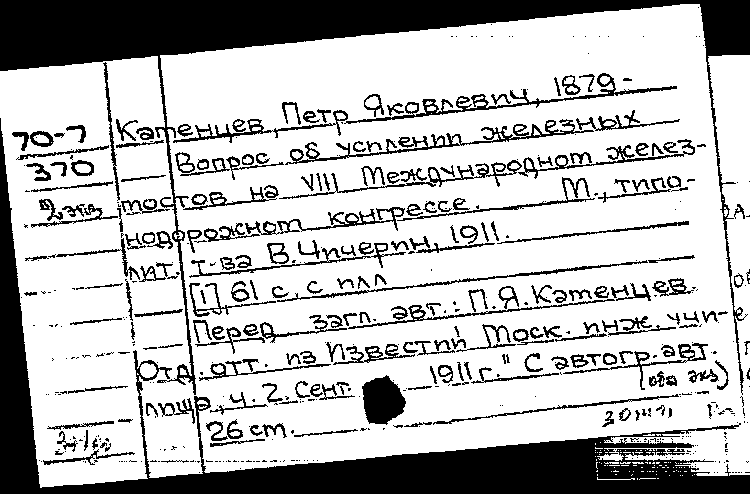 70-7 Каменцев, Петр Яковлевич, 1879-
370 Вопрос об усилении железных
2 экз мостов на VIII Международном желез-
нодорожном конгрессе. М., типо-
лит. т-ва В.Чичерин, 1911.
[1], 61 с. с илл
Перед загл. авт.: П.Я.Каменцев.
Отд. отт. из Известий Моск. инж. учи-
лища, ч. 2. Сент. 1911г." С автогр. авт.
(оба экз)
26 см.